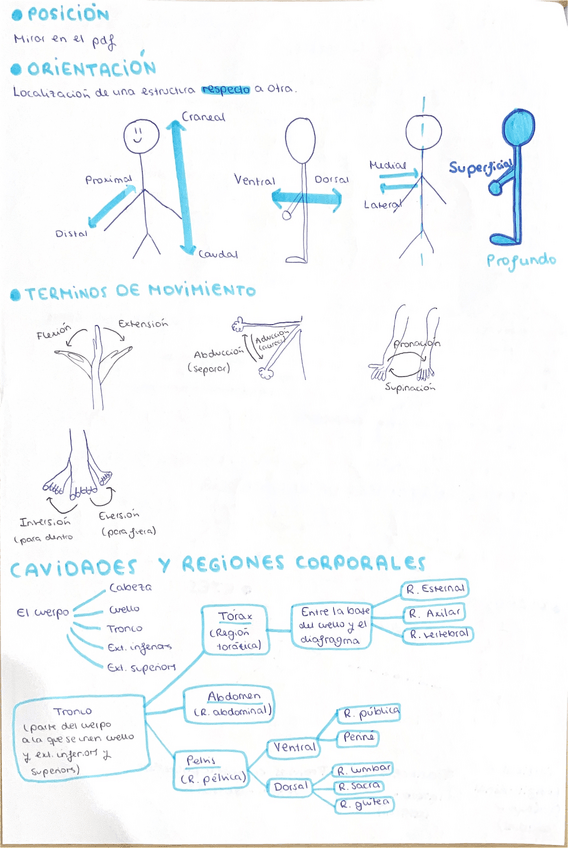 POSICIÓN
Mirar en el pdf
ORIENTACIÓN
Localización de una estructura respecto a otra.
Craneal
Proximal
Distal
Caudal
Ventral
Dorsal
Medial
Lateral
Superficial
Profundo
TERMINOS DE MOVIMIENTO
Flexión
Extensión
Abducción
(separar)
Aducción
Pronación
Supinación
Inversión
(para dentro
Eversión
(para fuera)
CAVIDADES Y REGIONES CORPORALES
El cuerpo
Cabeza
Cuello
Tronco
Ext. inferiors
Ext. superiors
Tórax
(Región
torática)
Entre la base
del cuello y el
diafragma
R. Esternal
R. Axilar
R. Vertebral
Tronco
(parte del cuerpo
a la que se unen cuello
y ext. inferiors y
superiors)
Abdomen
(R. abdominal)
Pelvis
(R. pélvica)
Ventral
R. pública
Penné
Dorsal
R. lumbar
R. sacra
R. glútea